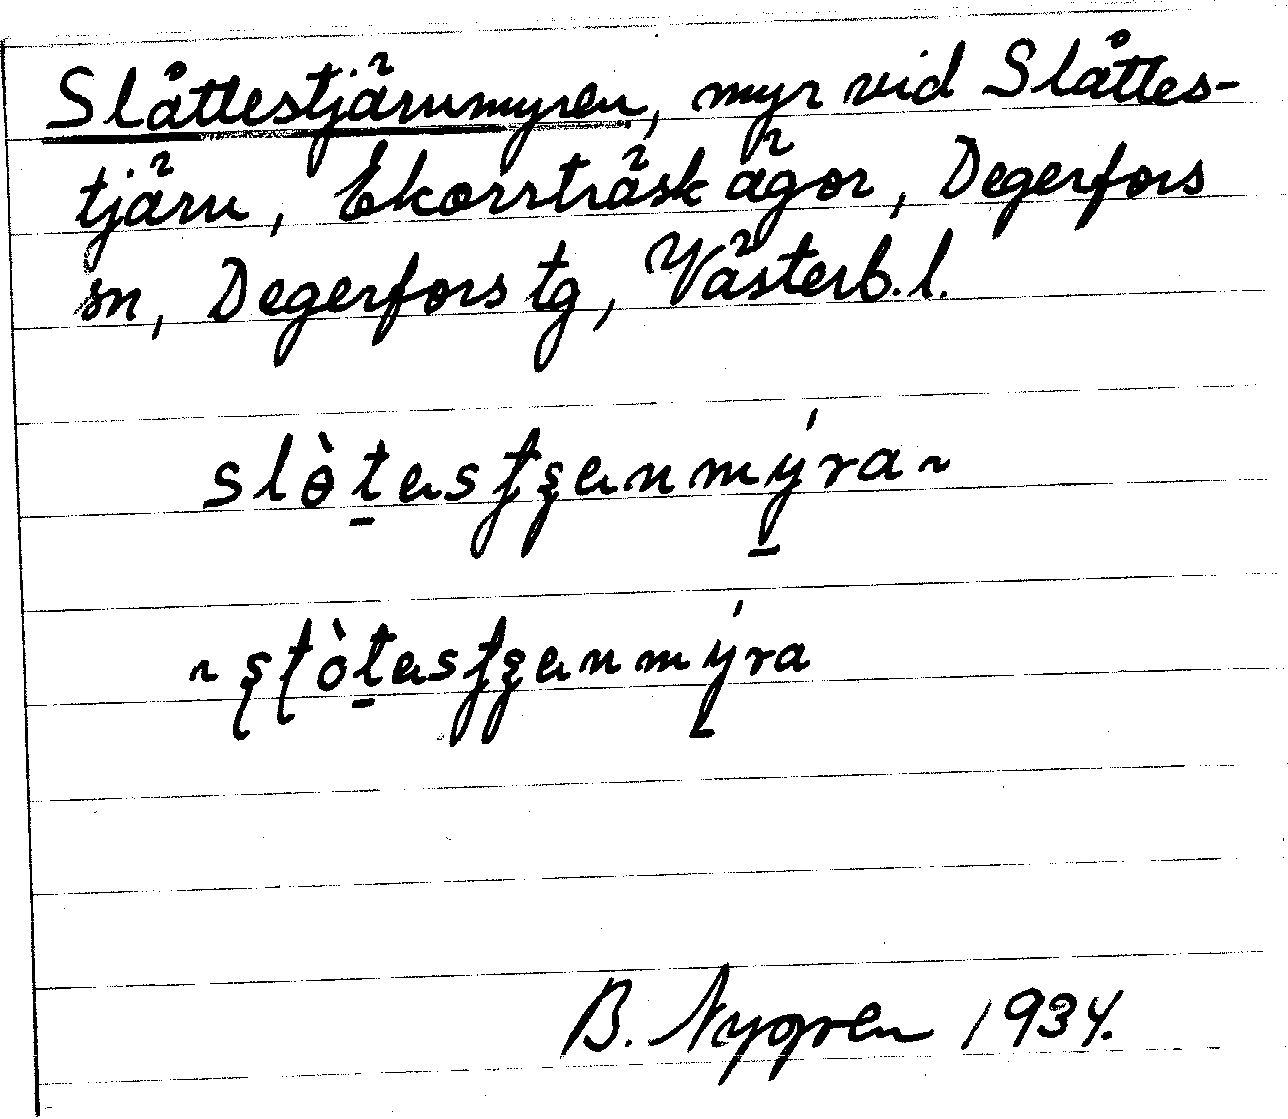 Slåttestjärnmyren, myr vid Slåttes-
tjärn, Ekorrträsk ägor, Degerfors
sn, Degerfors tg, Västerb. l.
B. Nygren 1934.